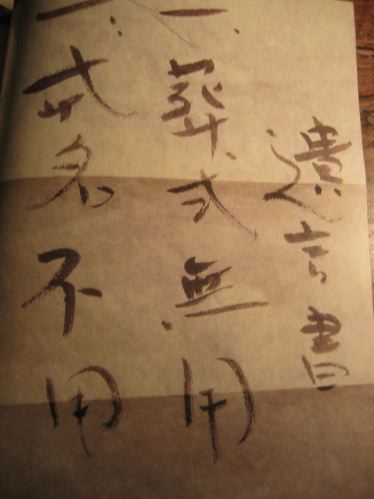 遺言書
一、葬式無用
一、戒名不用